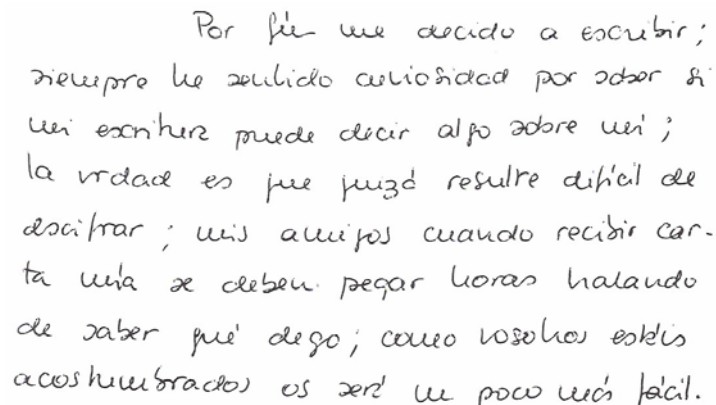 Por fin me decido a escribir;
siempre he sentido curiosidad por saber si
mi escritura puede decir algo sobre mi;
la vrdad es que quizá resulte difícil de
descifrar; mis amigos cuando recibir car-
ta mía se deben pegar horas tratando
de saber qué dego; como vosotros estáis
acostumbrados os será un poco más fácil.